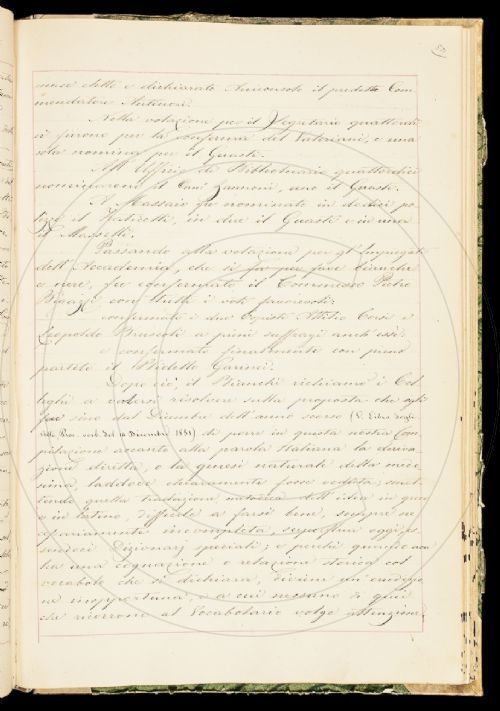 mase eletto e dichiarato Arciconsolo il predetto Com-
mendatore
Nella votazione per il Segretario quattordi
ci furono per la conferma del Valeriani, e una
sola nomina per il Guasti.
All' Uffizio di Bibliotecario quattordici
nominarono il Cav. Zannoni, uno il Guasti.
A Massaio fu nominato in dodici po-
lizze il in due il Guasti e in una
il
Passando alla votazione per gl' Impiegati
dell' Accademia, che si fa per fave bianche
e nere, fu confermato il Commesso Pietro
Bigazzi con tutti i voti favorevoli:
confermati i due Copisti Attilio Corsi e
Leopoldo a pieni suffragi anch' essi:
e confermato finalmente con pieno
partito il Bidello
Dopo ciò, il Bianchi richiamò i Col-
leghi a volersi risolvere sulla proposta che egli
fece sino dal Dicembre dell' anno scorso (V. Libro degli
Atti Proc. verb. del 10 Dicembre 1851) di porre in questa nostra Com-
pilazione accanto alla parola Italiana la deriva-
zione diretta, o la genesi naturale della mede-
sima, laddove chiaramente fosse veduta; omet-
tendo quella traduzione dell' idea in grec-
o in latino, difficile a farsi bene, sempre ne-
cessariamente incompleta, superflua oggi es-
sendoci Dizionarj speciali; e perchè quando non
ha una cognazione o relazione storica col
vocabolo che si dichiara, diviene un' erudizio-
ne inopportuna, e a cui nessuno di quei
che ricorrono al Vocabolario volge attenzione.